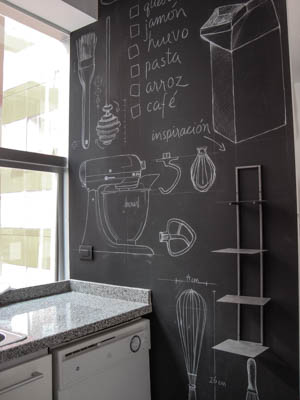 queso
jamón
huevo
pasta
arroz
café
inspiración
bowl
11 cm
26 cm